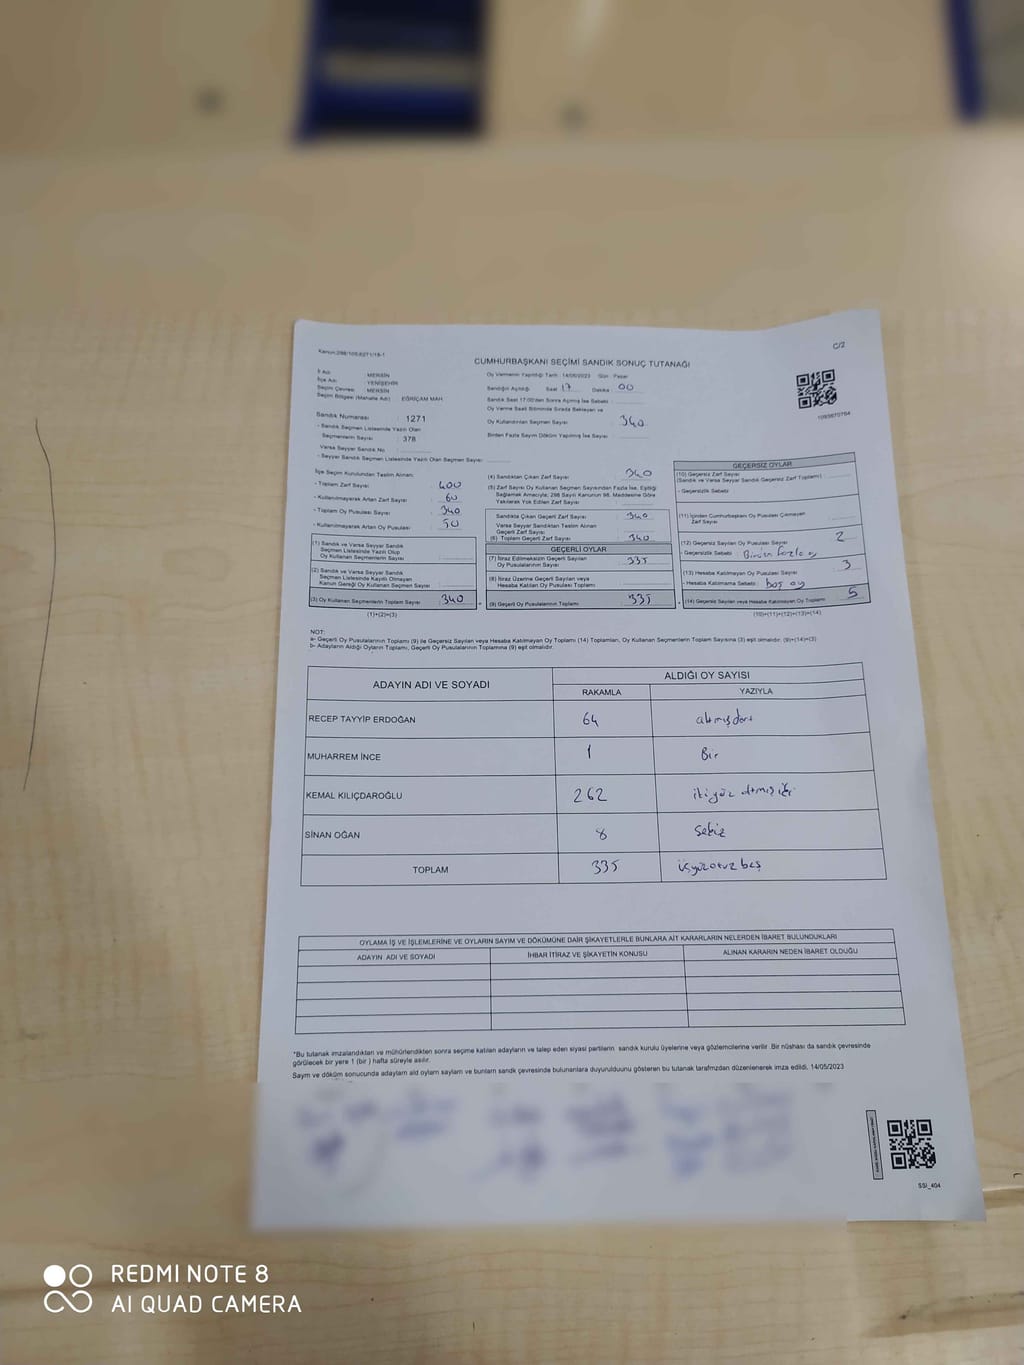 Kanun:298/105,6271/18-1
C/2
CUMHURBAŞKANI SEÇİMİ SANDIK SONUÇ TUTANAĞI
İl Adı : MERSİN
İlçe Adı : YENİŞEHİR
Seçim Çevresi : MERSİN
Seçim Bölgesi (Mahalle Adı) : EĞRİÇAM MAH
Sandık Numarası : 1271
- Sandık Seçmen Listesinde Yazılı Olan
Seçmenlerin Sayısı : 378
Varsa Seyyar Sandık No
- Seyyar Sandık Seçmen Listesinde Yazılı Olan Seçmen Sayısı:
Oy Vermenin Yapıldığı Tarih : 14/05/2023 Gün : Pazar
Sandığın Açıldığı Saat 17 Dakika 00
Sandık Saat 17:00'den Sonra Açılmış İse Sebebi
Oy Verme Saati Bitiminde Sırada Bekleyen ve
Oy Kullandırılan Seçmen Sayısı : 340
Birden Fazla Sayım Döküm Yapılmış İse Sayısı
1093670764
İlçe Seçim Kurulundan Teslim Alınan:
- Toplam Zarf Sayısı : 400
- Kullanılmayarak Artan Zarf Sayısı : 60
- Toplam Oy Pusulası Sayısı : 340
- Kullanılmayarak Artan Oy Pusulası : 50
(1) Sandık ve Varsa Seyyar Sandık
Seçmen Listesinde Yazılı Olup
Oy Kullanan Seçmenlerin Sayısı
(2) Sandık ve Varsa Seyyar Sandık
Seçmen Listesinde Kayıtlı Olmayan
Kanun Gereği Oy Kullanan Seçmen Sayısı
(3) Oy Kullanan Seçmenlerin Toplam Sayısı : 340
(1)+(2)=(3)
(4) Sandıktan Çıkan Zarf Sayısı : 340
(5) Zarf Sayısı Oy Kullanan Seçmen Sayısından Fazla İse, Eşitliği
Sağlamak Amacıyla; 298 Sayılı Kanunun 98. Maddesine Göre
Yakılarak Yok Edilen Zarf Sayısı
Sandıkta Çıkan Geçerli Zarf Sayısı : 340
Varsa Seyyar Sandıktan Teslim Alınan
Geçerli Zarf Sayısı
(6) Toplam Geçerli Zarf Sayısı : 340
GEÇERLİ OYLAR
(7) İtiraz Edilmeksizin Geçerli Sayılan
Oy Pusulalarının Sayısı : 335
(8) İtiraz Üzerine Geçerli Sayılan veya
Hesaba Katılan Oy Pusulası Toplamı
(9) Geçerli Oy Pusulalarının Toplamı : 335
GEÇERSİZ OYLAR
(10) Geçersiz Zarf Sayısı
(Sandık ve Varsa Seyyar Sandık Geçersiz Zarf Toplamı)
- Geçersizlik Sebebi
(11) İçinden Cumhurbaşkanı Oy Pusulası Çıkmayan
Zarf Sayısı
(12) Geçersiz Sayılan Oy Pusulası Sayısı : 2
- Geçersizlik Sebebi : Birden fazla oy
(13) Hesaba Katılmayan Oy Pusulası Sayısı : 3
- Hesaba Katılmama Sebebi : boş oy
(14) Geçersiz Sayılan veya Hesaba Katılmayan Oy Toplamı : 5
(10)+(11)+(12)+(13)=(14)
NOT:
a- Geçerli Oy Pusulalarının Toplamı (9) ile Geçersiz Sayılan veya Hesaba Katılmayan Oy Toplamı (14) Toplamları, Oy Kullanan Seçmenlerin Toplam Sayısına (3) eşit olmalıdır. (9)+(14)=(3)
b- Adayların Aldığı Oyların Toplamı, Geçerli Oy Pusulalarının Toplamına (9) eşit olmalıdır.
ADAYIN ADI VE SOYADI ALDIĞI OY SAYISI
RAKAMLA YAZIYLA
RECEP TAYYİP ERDOĞAN 64 altmışdört
MUHARREM İNCE 1 Bir
KEMAL KILIÇDAROĞLU 262 ikiyüz altmışiki
SİNAN OĞAN 8 Sekiz
TOPLAM 335 üçyüzotuzbeş
OYLAMA İŞ VE İŞLEMLERİNE VE OYLARIN SAYIM VE DÖKÜMÜNE DAİR ŞİKAYETLERLE BUNLARA AİT KARARLARIN NELERDEN İBARET BULUNDUKLARI
ADAYIN ADI VE SOYADI İHBAR İTİRAZ VE ŞİKAYETİN KONUSU ALINAN KARARIN NEDEN İBARET OLDUĞU
*Bu tutanak imzalandıktan ve mühürlendikten sonra seçime katılan adayların ve talep eden siyasi partilerin sandık kurulu üyelerine veya gözlemcilerine verilir. Bir nüshası da sandık çevresinde
görülecek bir yere 1 (bir) hafta süreyle asılır.
Sayım ve döküm sonucunda adayların aldı oyların sayıları ve bunların sandk çevresinde bulunanlara duyurulduunu gösteren bu tutanak tarafımzdan düzenlenerek imza edildi, 14/05/2023
SSI_404
REDMI NOTE 8
AI QUAD CAMERA